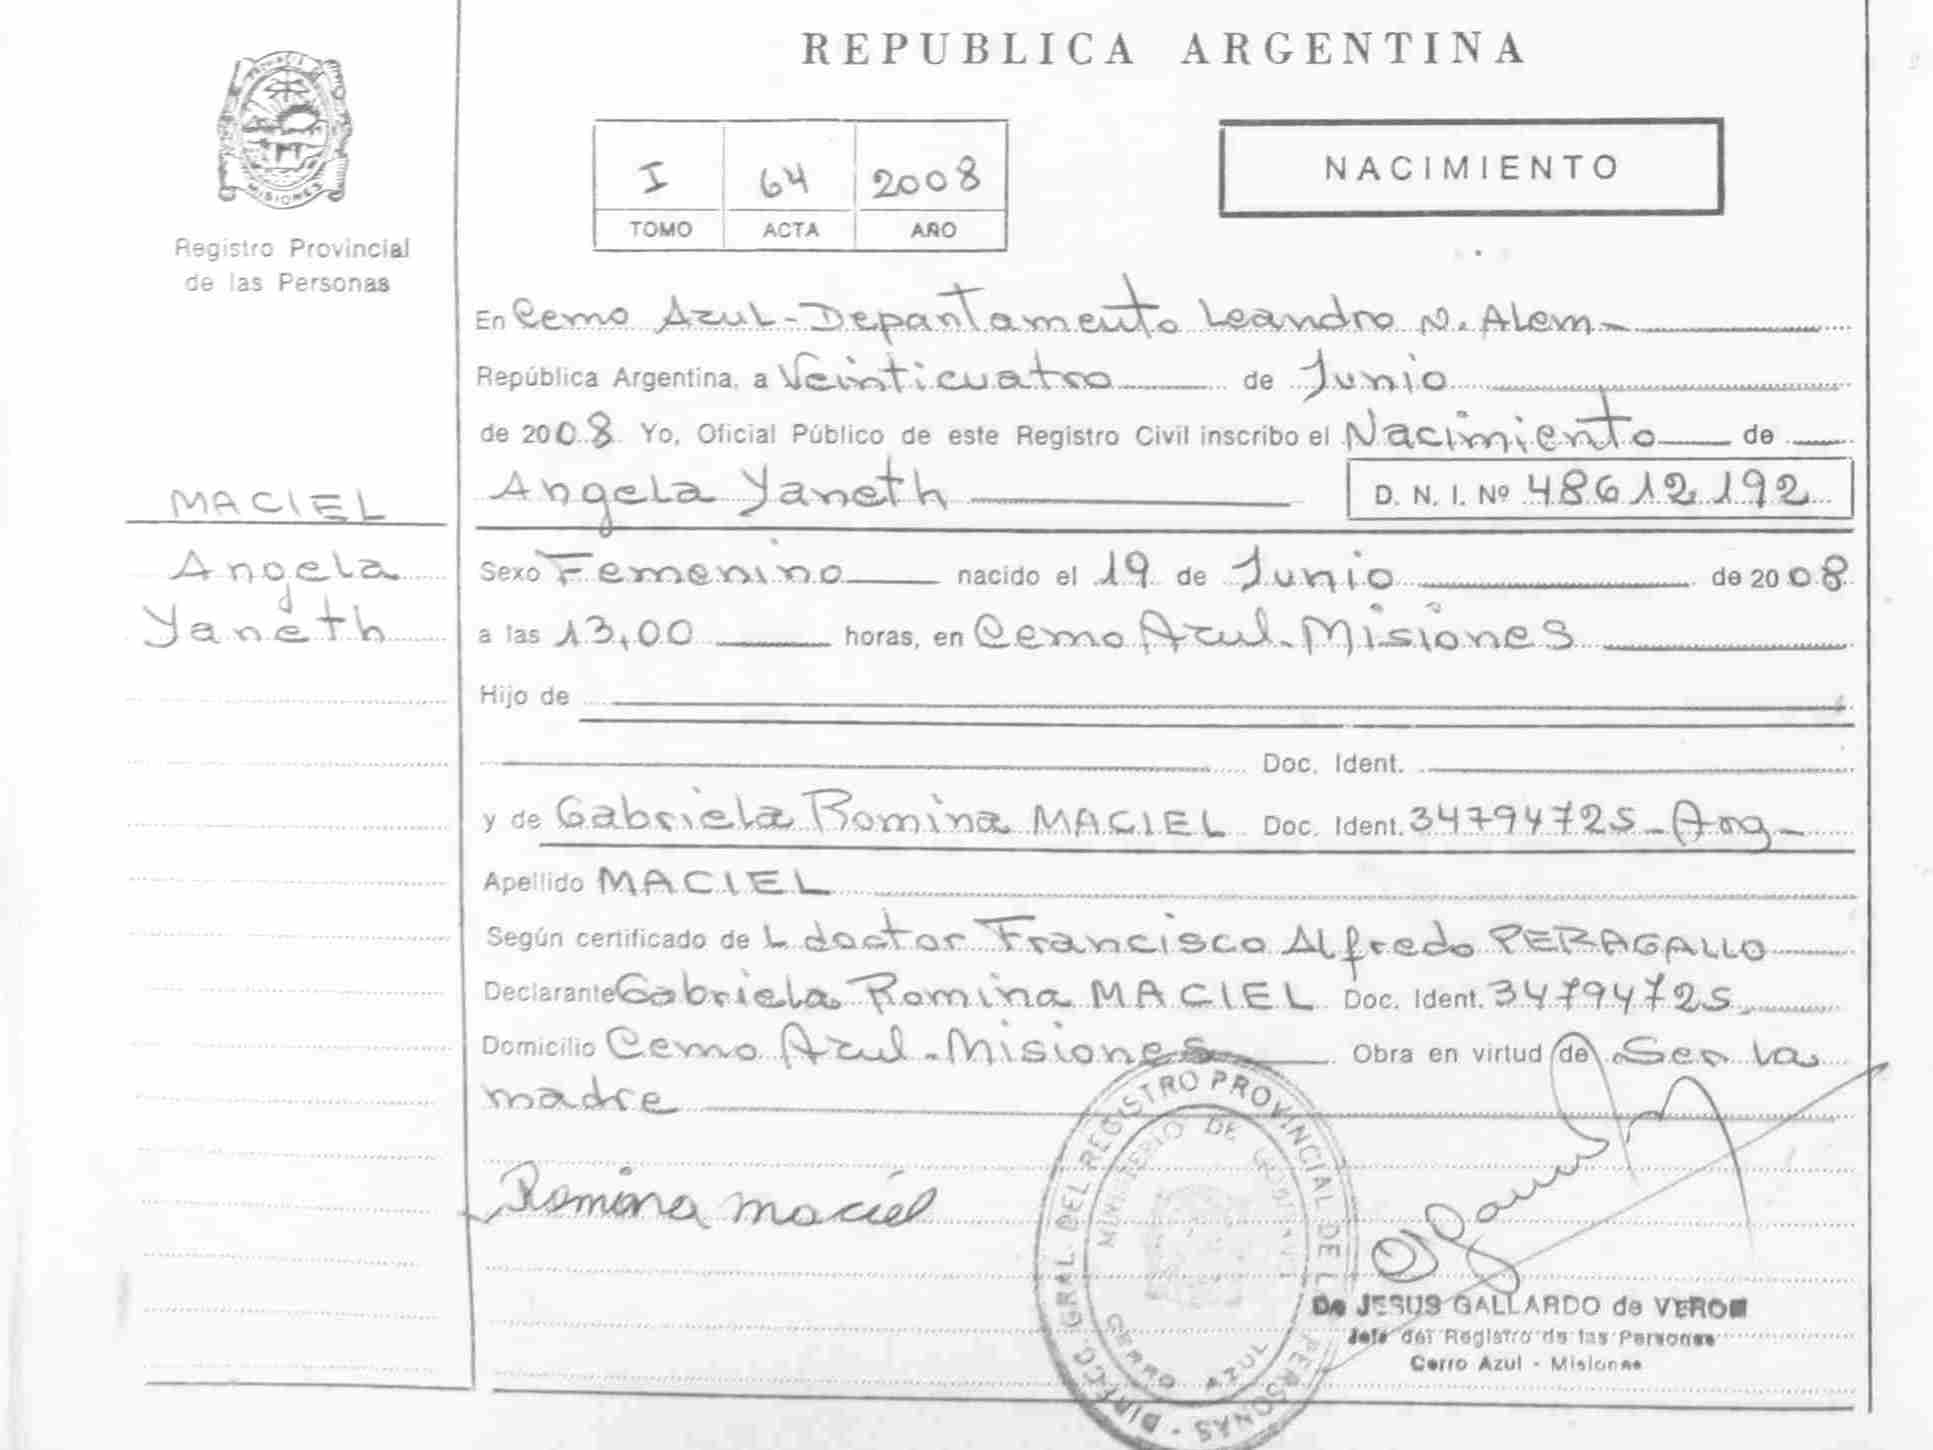 REPUBLICA ARGENTINA
PROVINCIA
MISIONES
Registro Provincial
de las Personas
I 64 2008
TOMO ACTA AÑO
NACIMIENTO
En Cerro Azul - Departamento Leandro N. Alem -
República Argentina, a Veinticuatro de Junio
de 2008 Yo, Oficial Público de este Registro Civil inscribo el Nacimiento de
Angela Yaneth D. N. I. Nº 48612192
MACIEL
Angela
Yaneth
Sexo Femenino nacido el 19 de Junio de 2008
a las 13,00 horas, en Cerro Azul - Misiones
Hijo de
Doc. Ident.
y de Gabriela Romina MACIEL Doc. Ident. 34794725 - Arg -
Apellido MACIEL
Según certificado de L doctor Francisco Alfredo PERAGALLO
Declarante Gabriela Romina MACIEL Doc. Ident. 34794725
Domicilio Cerro Azul - Misiones Obra en virtud de Ser la
madre
Romina Maciel
DIREC. GRAL. DEL REGISTRO PROVINCIAL DE LAS PERSONAS
MINISTERIO DE GOBIERNO
CERRO AZUL
De JESUS GALLARDO de VERON
Jefe del Registro de las Personas
Cerro Azul - Misiones